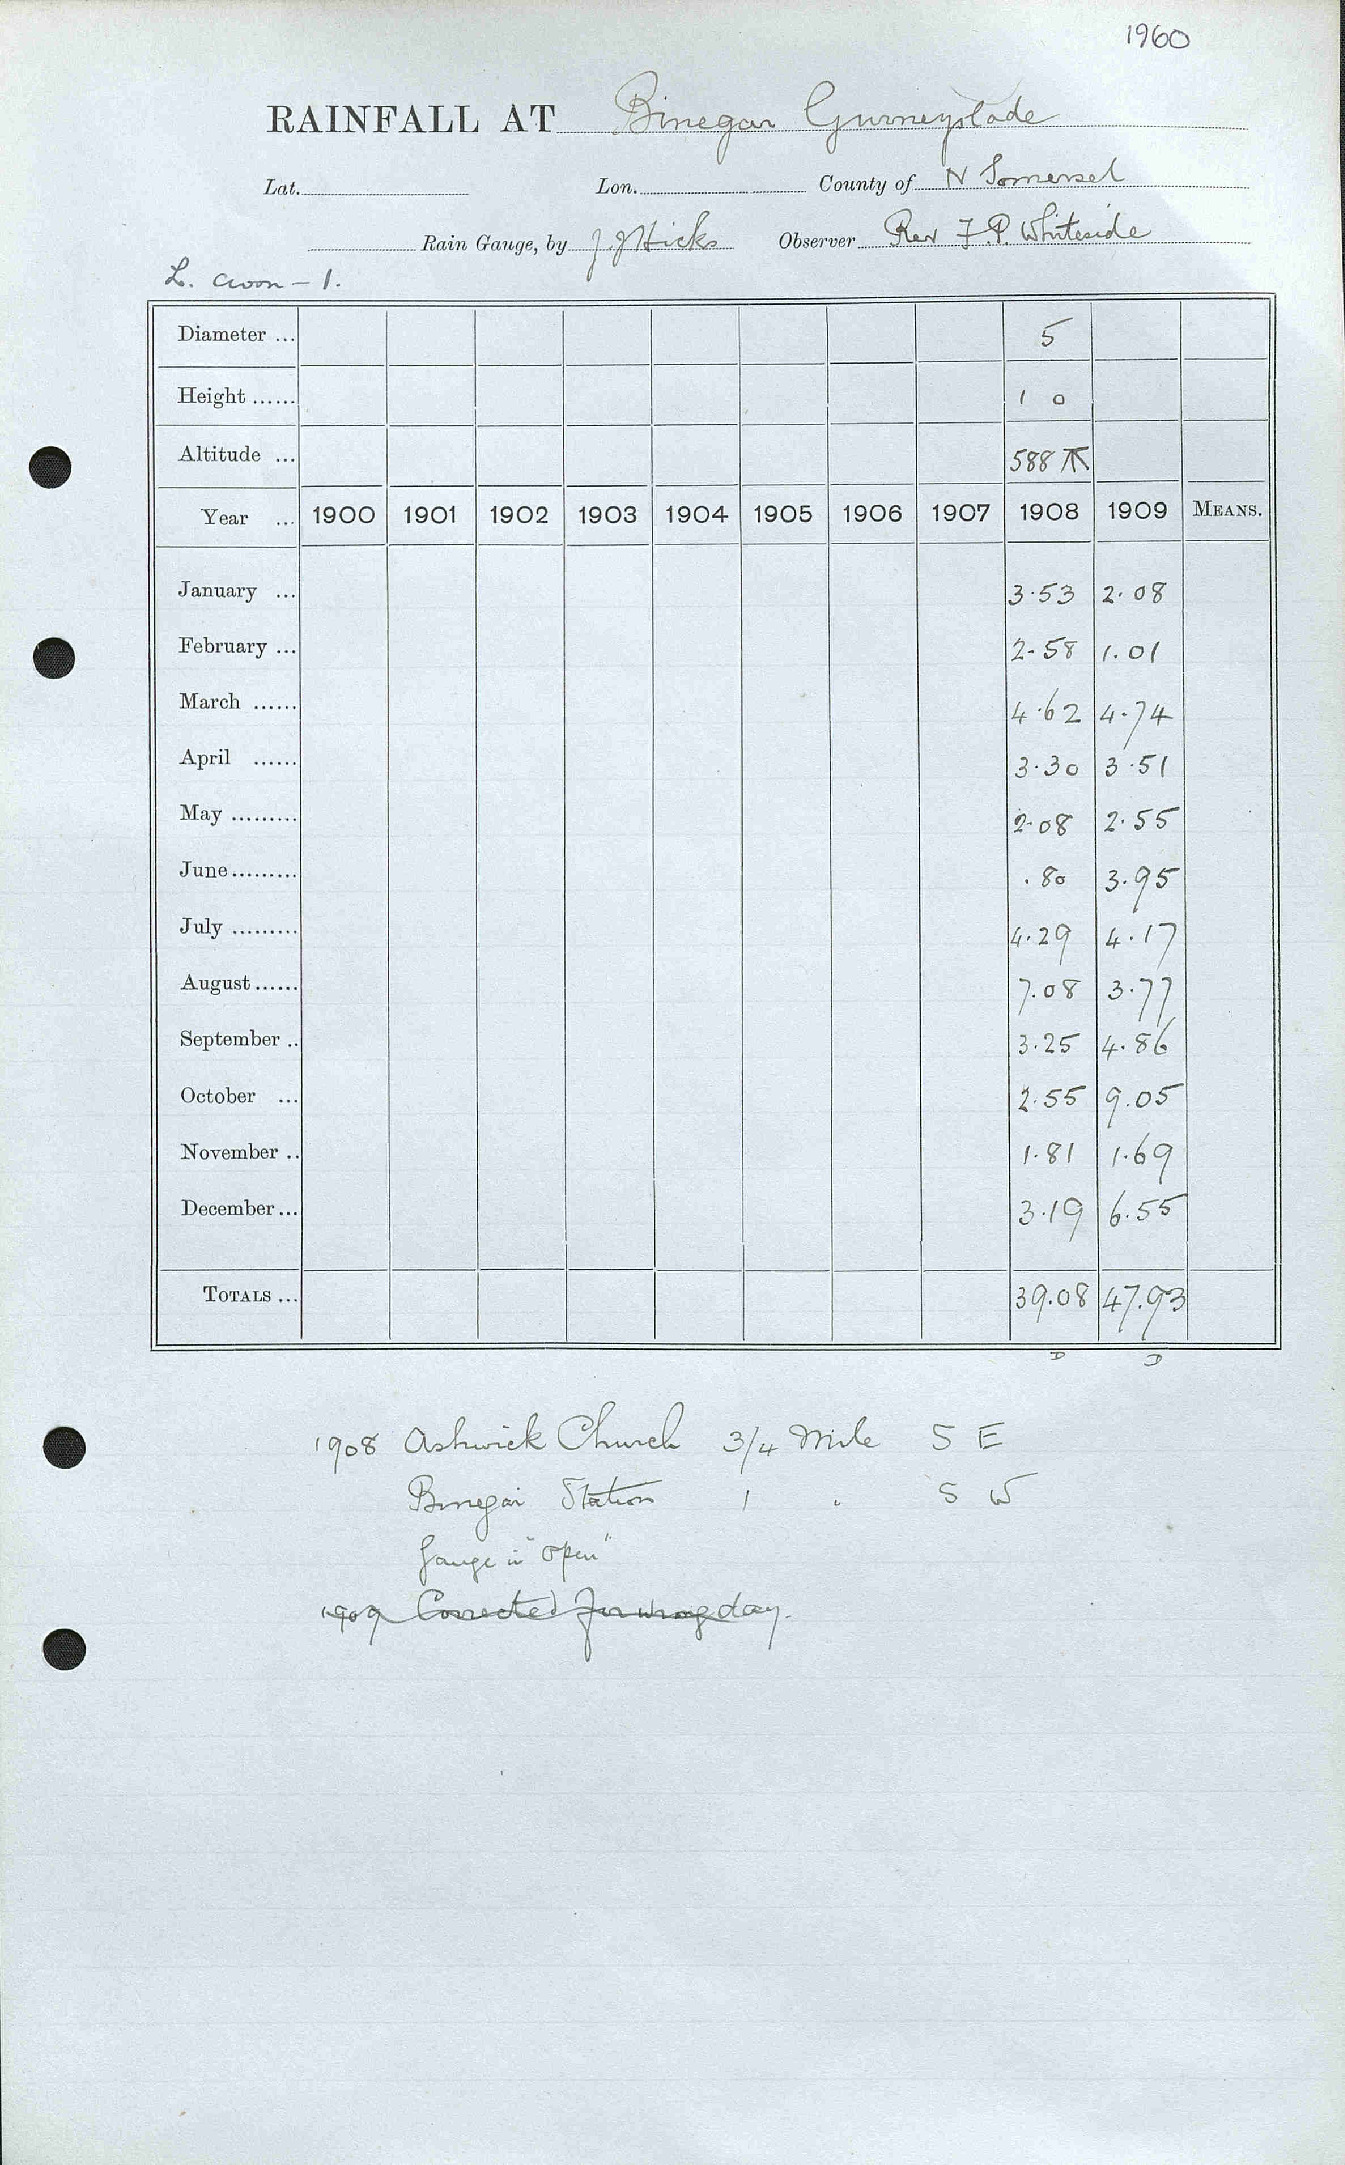 1960
RAINFALL AT Binegar Gurneyslade
Lat. Lon. County of N Somerset
Rain Gauge, by J J Hicks Observer Rev F. P. Whiteside
L. Avon - 1.
Diameter ... 5
Height ...... 1 0
Altitude ... 588
Year ... 1900 1901 1902 1903 1904 1905 1906 1907 1908 1909 MEANS.
January ... 3.53 2.08
February ... 2.58 1.01
March ...... 4.62 4.74
April ...... 3.30 3.51
May ......... 2.08 2.55
June ......... .80 3.95
July ......... 4.29 4.17
August ...... 7.08 3.77
September .. 3.25 4.86
October ... 2.55 9.05
November .. 1.81 1.69
December ... 3.19 6.55
TOTALS ... 39.08 47.93
D D
1908 Ashwick Church 3/4 Mile S E
Binegar Station 1 " S W
Gauge in "open"
1909 Corrected for wrong day.